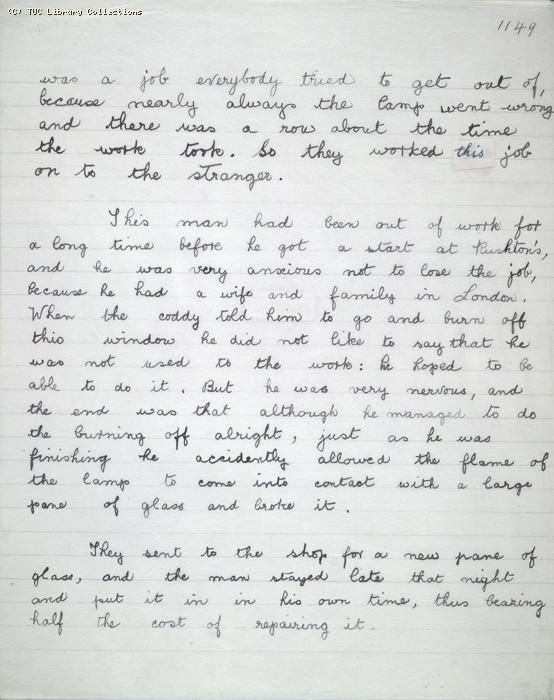 (C) TUC Library Collections
1149
was a job everybody tried to get out of,
because nearly always the lamp went wrong
and there was a row about the time
the work took. So they worked this job
on to the stranger.
This man had been out of work for
a long time before he got a start at Rushton's,
and he was very anxious not to lose the job,
because he had a wife and family in London.
When the coddy told him to go and burn off
this window he did not like to say that he
was not used to the work: he hoped to be
able to do it. But he was very nervous, and
the end was that although he managed to do
the burning off alright, just as he was
finishing he accidently allowed the flame of
the lamp to come into contact with a large
pane of glass and broke it.
They sent to the shop for a new pane of
glass, and the man stayed late that night
and put it in in his own time, thus bearing
half the cost of repairing it.